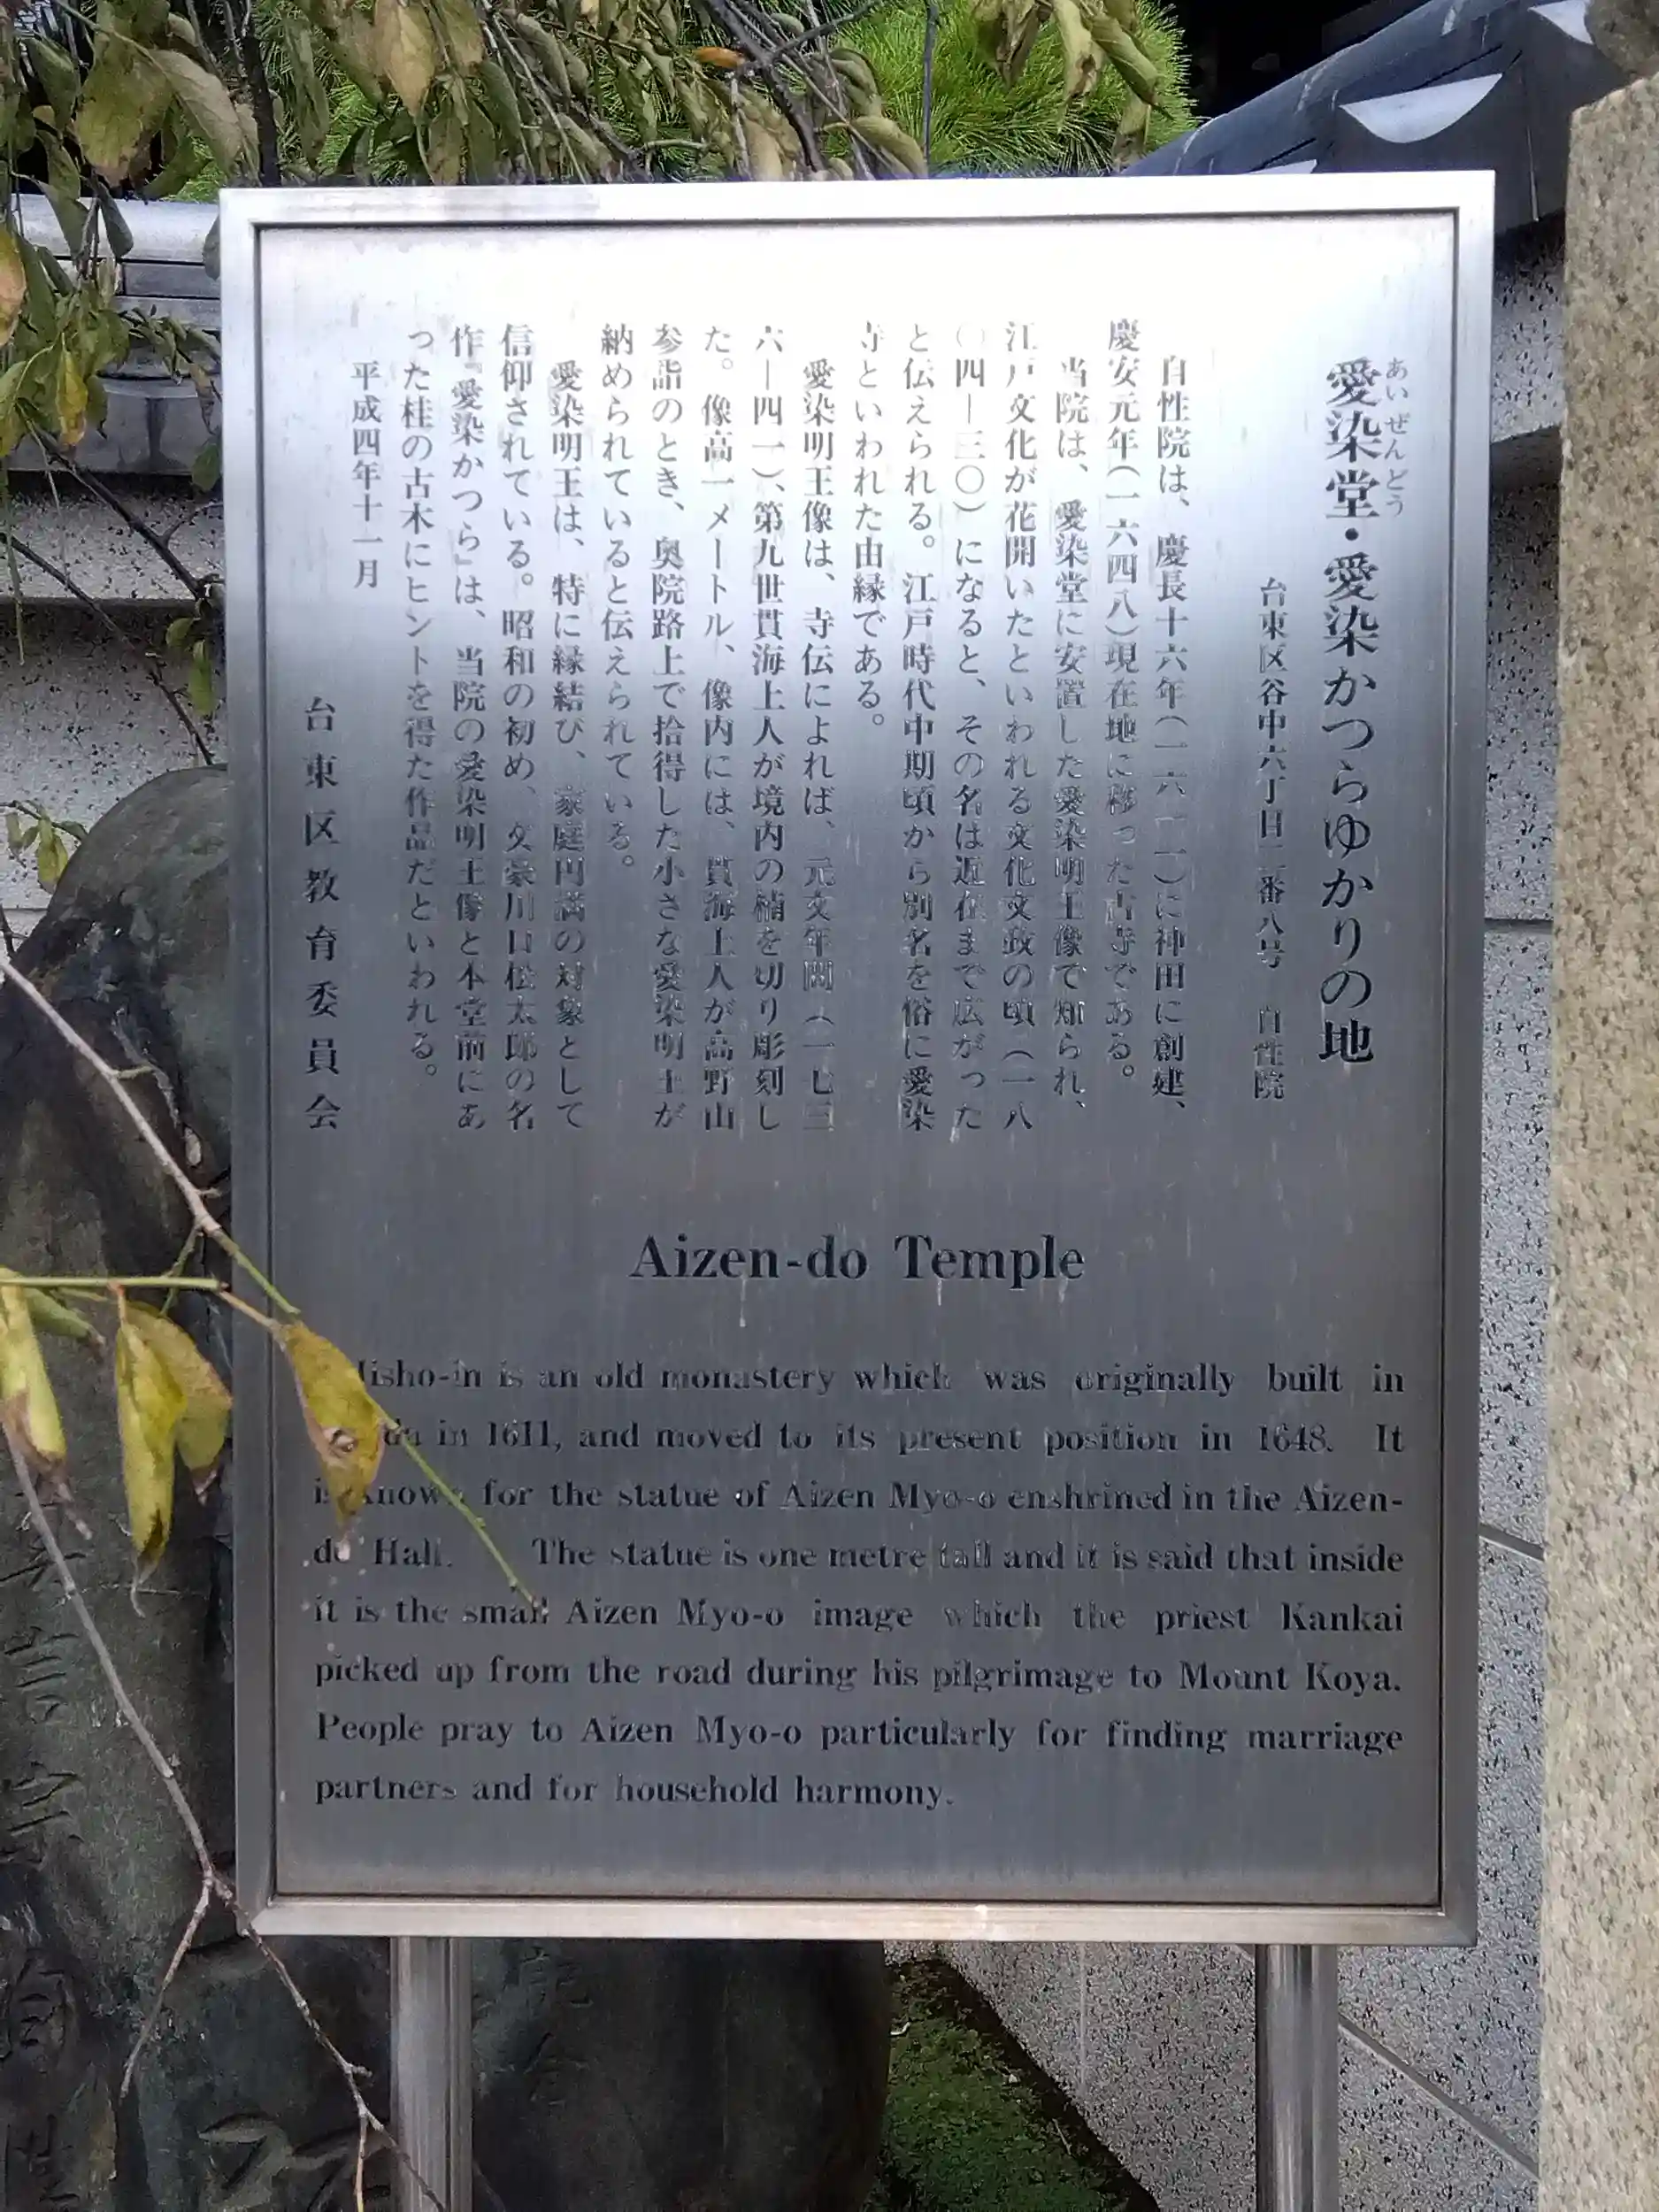 愛染堂・愛染かつらゆかりの地
あいぜんどう
台東区谷中六丁目二番八号 自性院
自性院は、慶長十六年(一六一一)に神田に創建、
慶安元年(一六四八)現在地に移った古寺である。
当院は、愛染堂に安置した愛染明王像で知られ、
江戸文化が花開いたといわれる文化文政の頃(一八
〇四―三〇)になると、その名は近在まで広がった
と伝えられる。江戸時代中期頃から別名を俗に愛染
寺といわれた由縁である。
愛染明王像は、寺伝によれば、元文年間(一七三
六―四一)、第九世貫海上人が境内の楠を切り彫刻し
た。像高一メートル、像内には、貫海上人が高野山
参詣のとき、奥院路上で拾得した小さな愛染明王が
納められていると伝えられている。
愛染明王は、特に縁結び、家庭円満の対象として
信仰されている。昭和の初め、文豪川口松太郎の名
作『愛染かつら』は、当院の愛染明王像と本堂前にあ
った桂の古木にヒントを得た作品だといわれる。
平成四年十一月
台東区教育委員会
Aizen-do Temple
Jisho-in is an old monastery which was originally built in
in 1611, and moved to its present position in 1648. It
is known for the statue of Aizen Myo-o enshrined in the Aizen-
do Hall. The statue is one metre tall and it is said that inside
it is the small Aizen Myo-o image which the priest Kankai
picked up from the road during his pilgrimage to Mount Koya.
People pray to Aizen Myo-o particularly for finding marriage
partners and for household harmony.